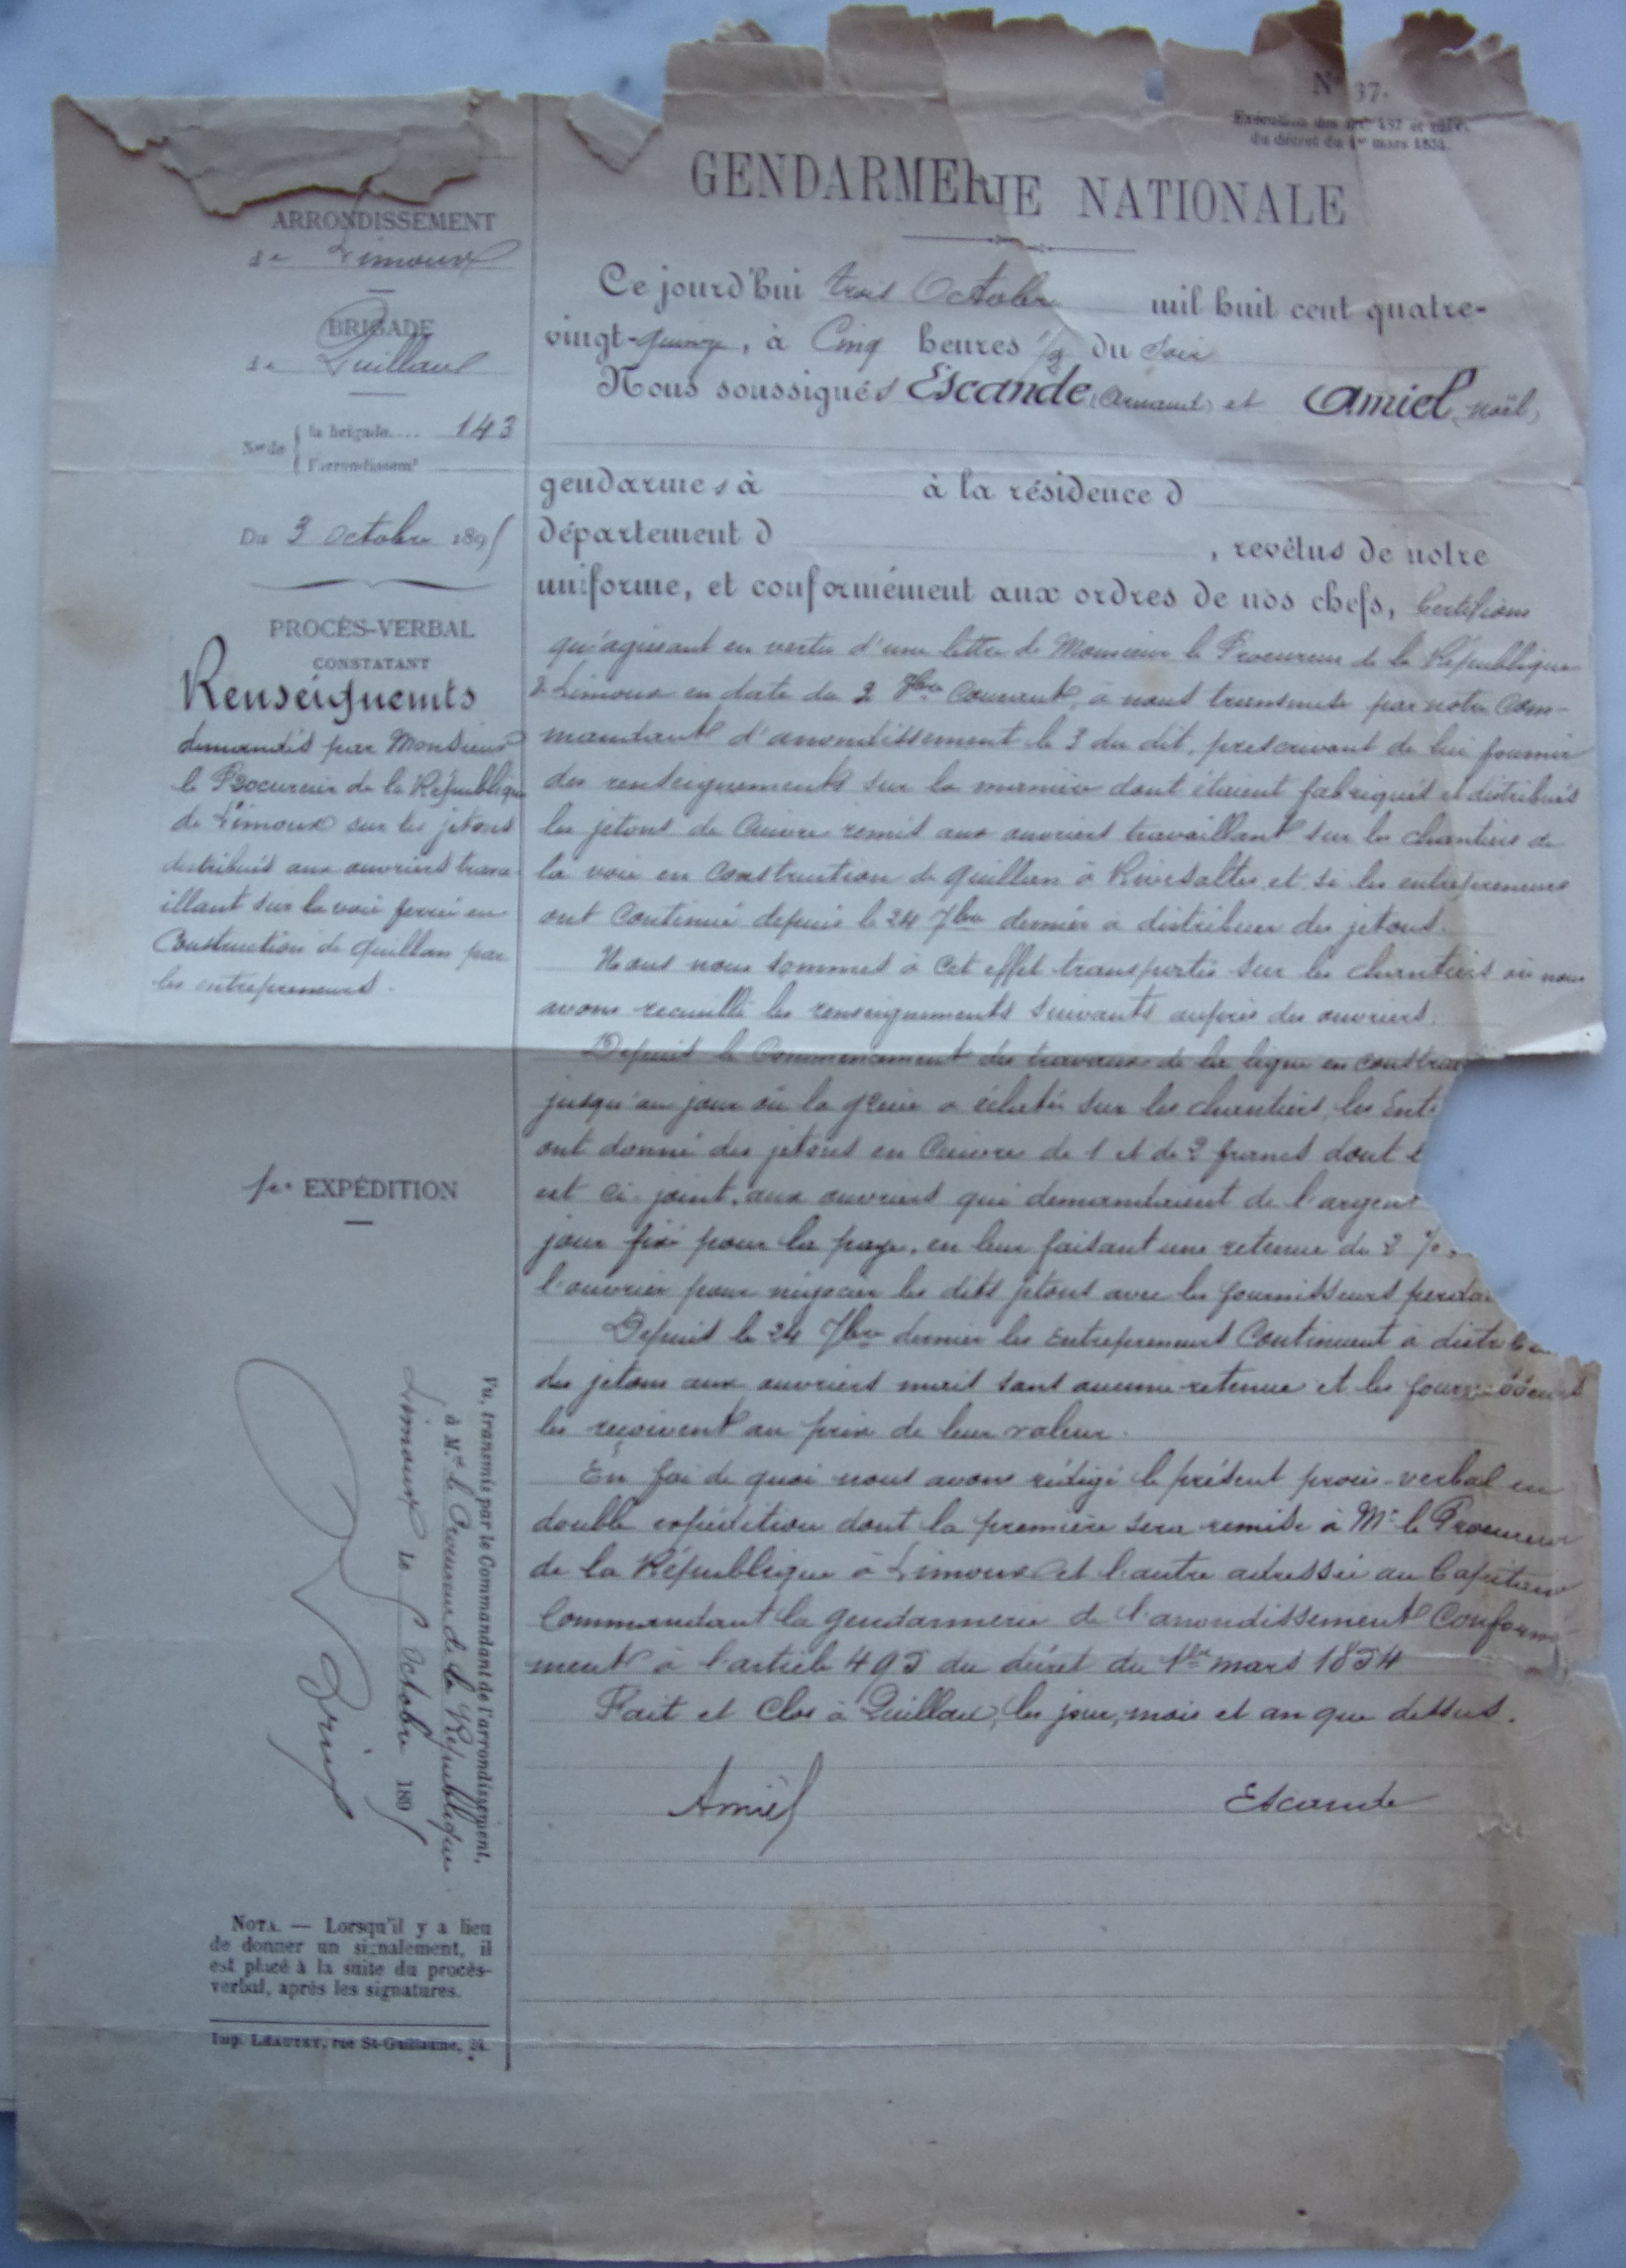 N° 37.
Exécution des art. 487 et suiv.
du décret du 1er mars 1854.
GENDARMERIE NATIONALE
ARRONDISSEMENT
de Limoux
BRIGADE
de Quillan
Nos de { la brigade.... 143
l'arrondissemt
Du 3 Octobre 1895
PROCÈS-VERBAL
CONSTATANT
Renseignemts
demandés par Monsieur
le Procureur de la République
de Limoux sur les jetons
distribués aux ouvriers trava-
illant sur la voie ferrée en
Construction de Quillan par
les entrepreneurs.
1re EXPÉDITION
Vu, transmis par le Commandant de l'arrondissement,
à Mr. le Procureur de la République
Limoux le 5 Octobre 1895
NOTA. — Lorsqu'il y a lieu
de donner un signalement, il
est placé à la suite du procès-
verbal, après les signatures.
Imp. LÉAUTEY, rue St-Guillaume, 24.
Ce jourd'hui trois Octobre mil huit cent quatre-
vingt-quinze, à Cinq heures 1/2 du soir
Nous soussignés Escande (Armand) et Amiel, Noël,
gendarmes à à la résidence d
département d , revêtus de notre
uniforme, et conformément aux ordres de nos chefs, Certifions
qu'agissant en vertu d'une lettre de Monsieur le Procureur de la République
de Limoux en date du 2 8bre Courant, à nous transmise par notre Com-
mandant d'arrondissement le 3 du dit, prescrivant de lui fournir
des renseignements sur la manière dont étaient fabriqués et distribués
les jetons de Cuivre remis aux ouvriers travaillant sur les chantiers de
la voie en Construction de Quillan à Rivesaltes et si les entrepreneurs
ont Continué depuis le 24 7bre dernier à distribuer des jetons.
Nous nous sommes à Cet effet transportés sur les chantiers où nous
avons recueilli les renseignements suivants auprès des ouvriers.
Depuis le Commencement des travaux de la ligne en constru
jusqu'au jour où la grève a éclaté sur les chantiers, les Ent
ont donné des jetons en Cuivre de 1 et de 2 francs dont
est ci-joint, aux ouvriers qui demandaient de l'argent
jour fixé pour la paye, en leur faisant une retenue de 2 %,
l'ouvrier pour négocier les dits jetons avec les fournisseurs perda
Depuis le 24 7bre dernier les Entrepreneurs Continuent à distribuer
des jetons aux ouvriers mais sans aucune retenue et les fournisseurs
les reçoivent au prix de leur valeur.
En foi de quoi nous avons rédigé le présent procès-verbal en
double expédition dont la première sera remise à Mr le Procureur
de la République à Limoux et l'autre adressée au Capitaine
Commandant la gendarmerie de l'arrondissement Conformé-
ment à l'article 495 du décret du 1er mars 1854
Fait et Clos à Quillan, les jour, mois et an que dessus.
Amiel Escande